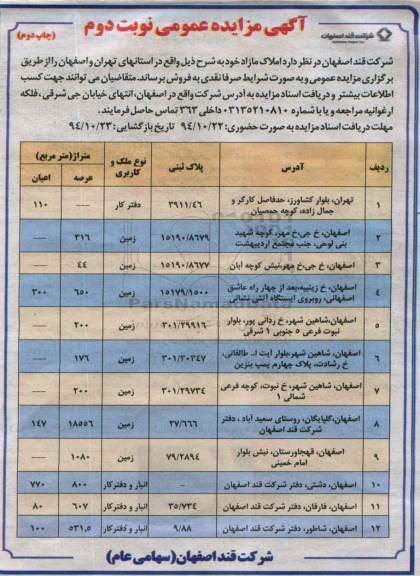 شرکت قند اصفهان
آگهی مزایده عمومی نوبت دوم
(چاپ دوم)
شرکت قند اصفهان در نظر دارد املاک مازاد خود به شرح ذیل واقع در استانهای تهران و اصفهان را از طریق
برگزاری مزایده عمومی و به صورت شرایط صرفا نقدی به فروش برساند. متقاضیان می توانند جهت کسب
اطلاعات بیشتر و دریافت اسناد مزایده به آدرس شرکت واقع در اصفهان، انتهای خیابان جی شرقی، فلکه
ارغوانیه مراجعه و یا با شماره ۰۳۱۳۵۲۱۰۸۱۰ داخلی ۳۶۳ تماس حاصل فرمایند.
مهلت دریافت اسناد مزایده به صورت حضوری: ۹۴/۱۰/۲۲ تاریخ بازگشایی: ۹۴/۱۰/۲۳
ردیف آدرس پلاک ثبتی نوع ملک و کاربری متراژ(متر مربع) عرصه اعیان
۱ تهران، بلوار کشاورز، حدفاصل کارگر و جمال زاده، کوچه حبمسیان ۳۹۱۱/۴۶ دفتر کار ---- ۱۱۰
۲ اصفهان، خ جی،خ مهر، کوچه شهید بنی لوحی، جنب مجتمع اردیبهشت ۱۵۱۹۰/۸۶۷۹ زمین ۳۱۶ ----
۳ اصفهان، خ جی،خ مهر،نبش کوچه ابان ۱۵۱۹۰/۸۶۷۷ زمین ۴۴ ----
۴ اصفهان، خ زینبیه،بعد از چهار راه عاشق اصفهانی، روبروی ایستگاه آتش نشانی ۱۵۱۷۹/۱۵۰۰ زمین ۶۵۰ ۳۰۰
۵ اصفهان،شاهین شهر، خ ردانی پور، بلوار نبوت فرعی ۵ جنوبی ۱ شرقی ۳۰۱/۲۹۹۱۶ زمین ۲۰۰ ----
۶ اصفهان، شاهین شهر،بلوار ایت ا... طالقانی، خ رشادت، پلاک چهارم پمپ بنزین ۳۰۱/۳۰۳۴۷ زمین ۱۷۶ ----
۷ اصفهان، شاهین شهر، خ نبوت، کوچه فرعی شمالی ۱ ۳۰۱/۲۹۷۳۴ زمین ۲۰۰ ----
۸ اصفهان،گلپایگان، روستای سعید آباد، دفتر شرکت قند اصفهان ۲۷/۶۶۶ زمین ۱۸۵۵۶ ۱۴۷
۹ اصفهان، قهجاورستان، نبش بلوار امام خمینی ۷۹/۲۸۹۴ زمین ۱۰۸۰ ----
۱۰ اصفهان، دشتی، دفتر شرکت قند اصفهان - انبار و دفترکار ۸۰۰ ۷۷۰
۱۱ اصفهان، فارفان، دفتر شرکت قند اصفهان ۳۵/۷۳۴ انبار و دفترکار ۶۰۷ ۸۰
۱۲ اصفهان، شاطور، دفتر شرکت قند اصفهان ۹/۸۸ انبار و دفترکار ۵۳۱,۵ ۱۰۰
شرکت قند اصفهان(سهامی عام)